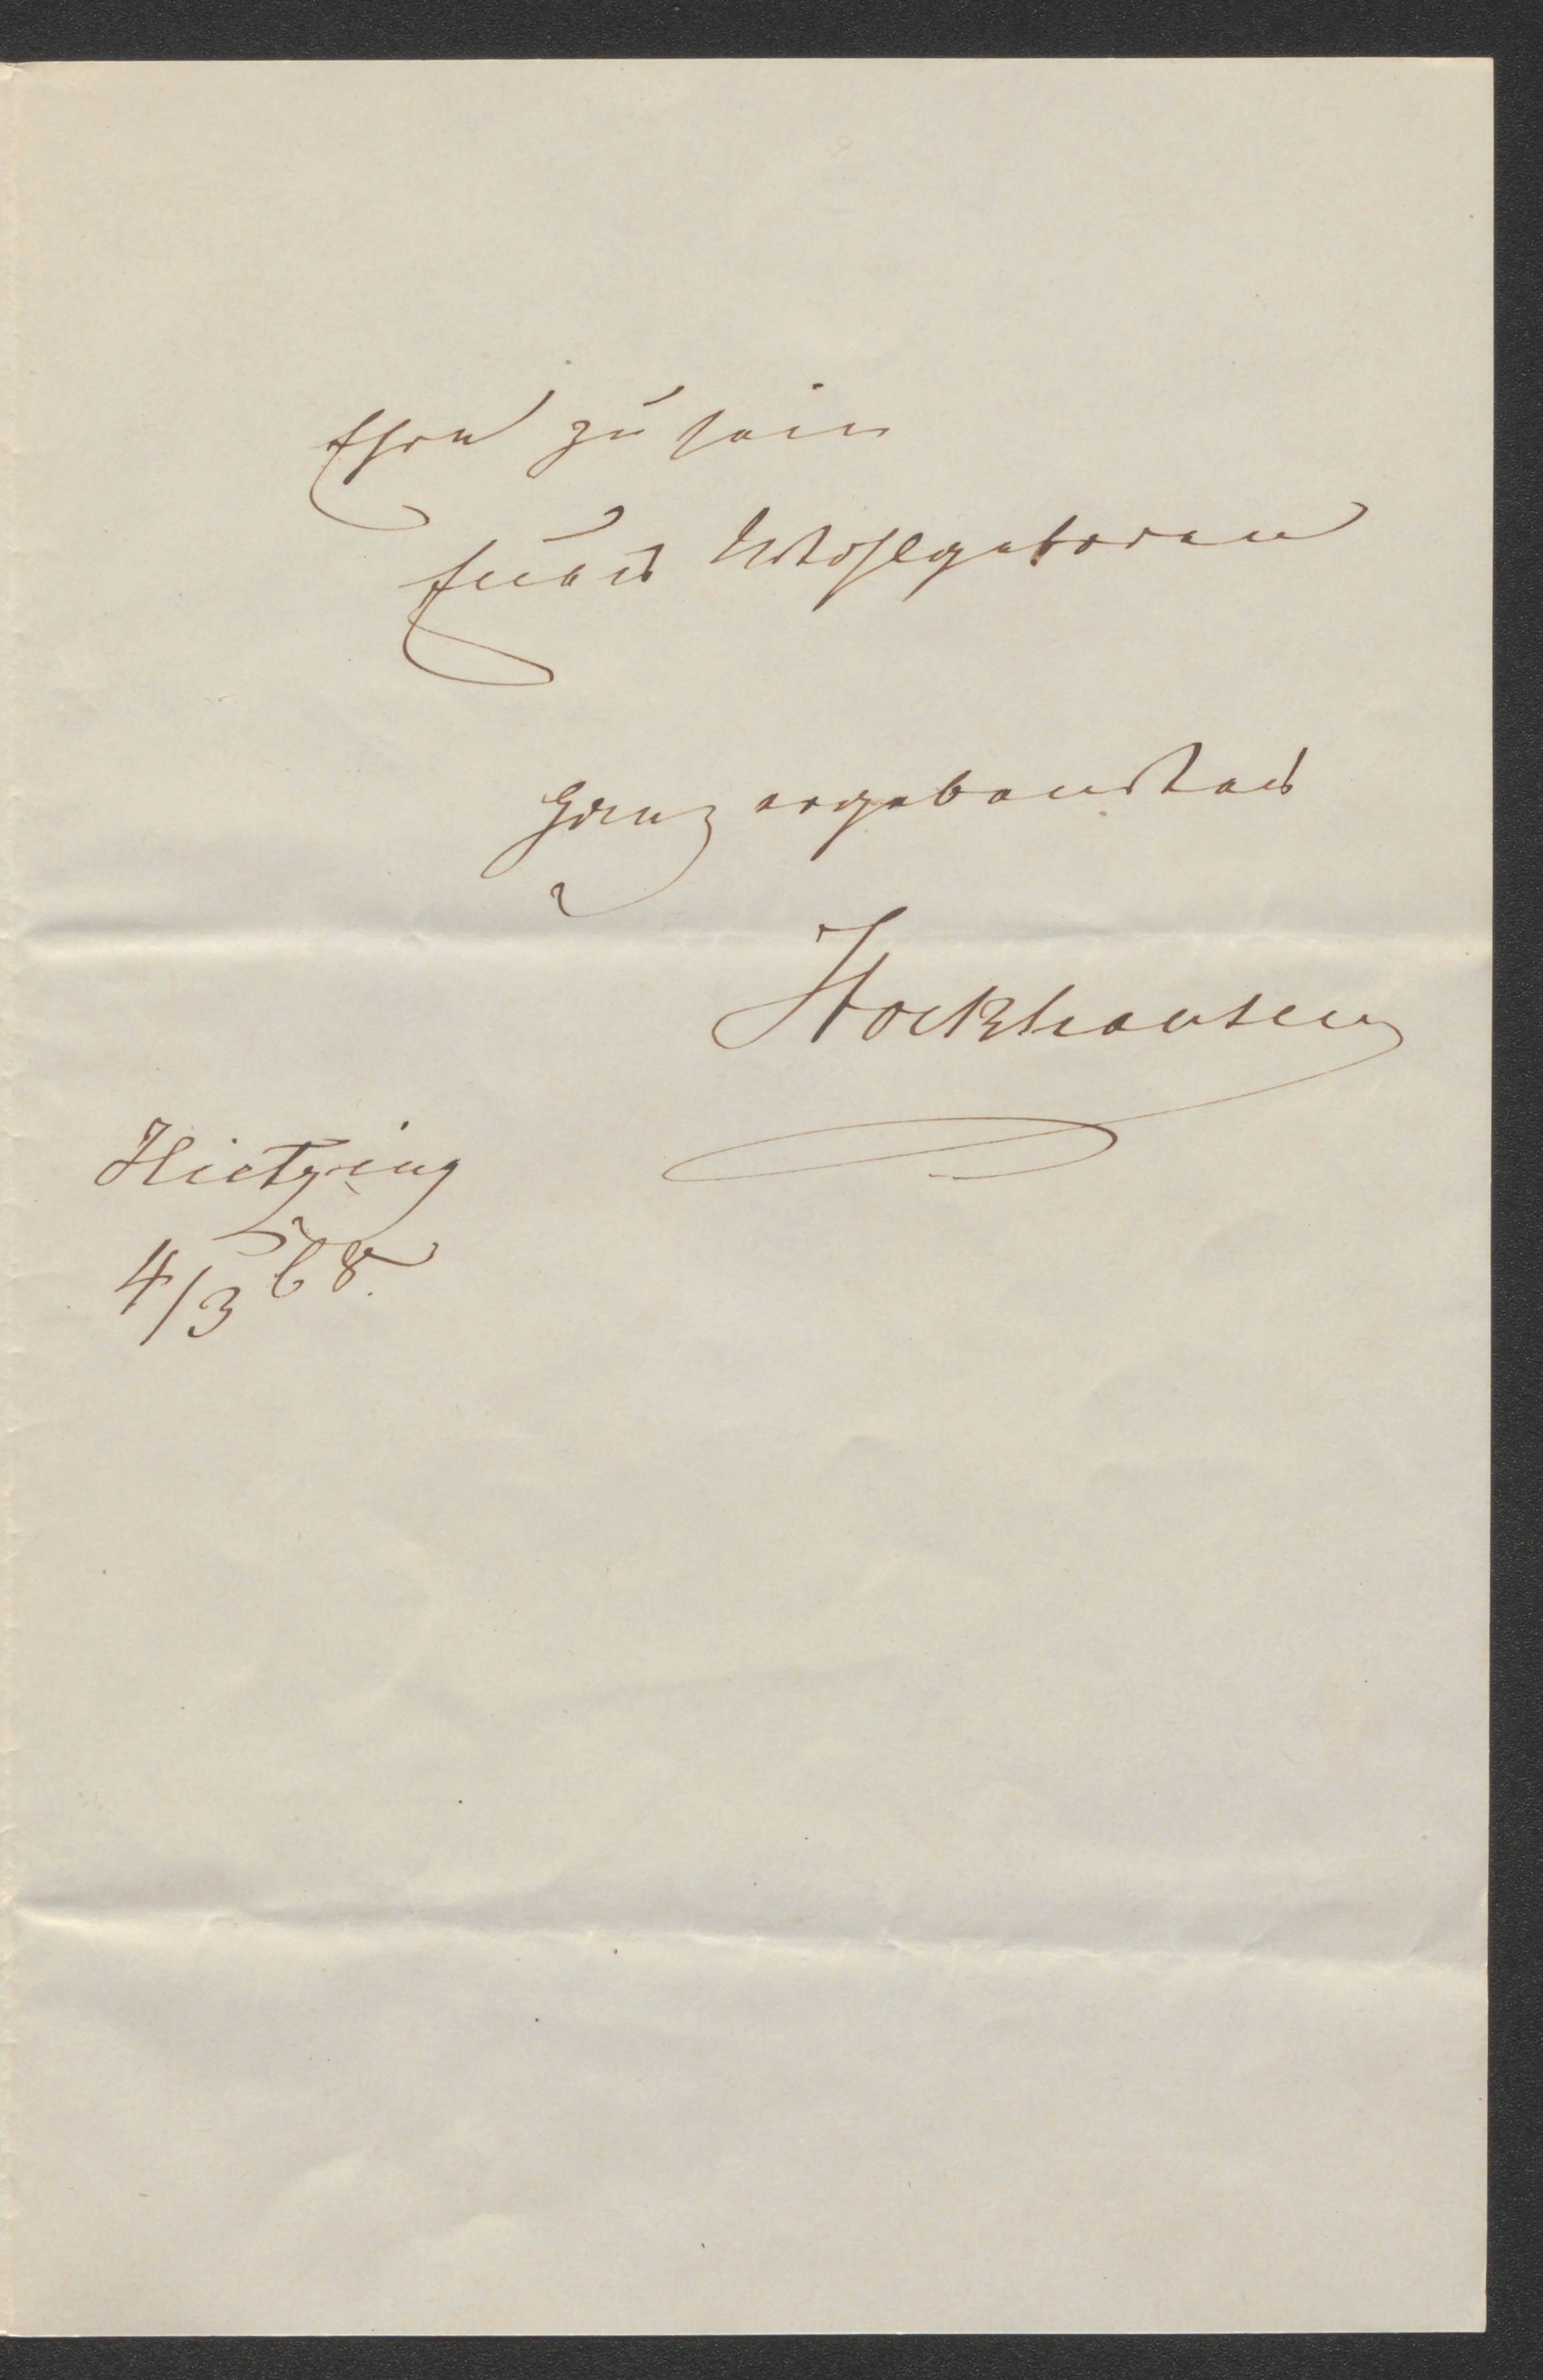 Ehre zu sein
Euer Wohlgeboren
ganz ergebenster
Stockhausen
Hietzing
4/3 68.